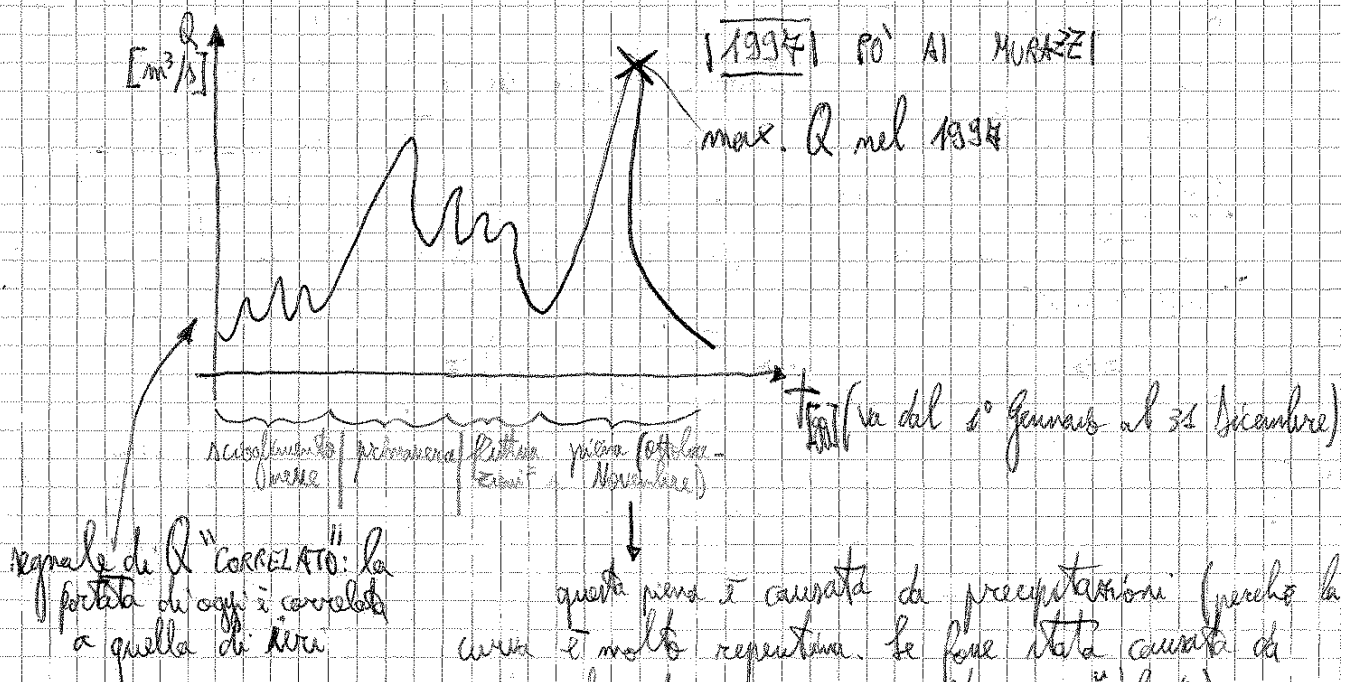 Q
[m³/s]
|1997| PO' AI MURAZZI
max. Q nel 1997
t [gg] (va dal 1° Gennaio al 31 Dicembre)
scioglimento | primavera | fluttua | piena (ottobre-
neve zioni Novembre)
segnale di Q "CORRELATO": la
portata di oggi è correlata
a quella di ieri
questa piena è causata da precipitazioni (perché la
curva è molto repentina. Se fosse stata causata da